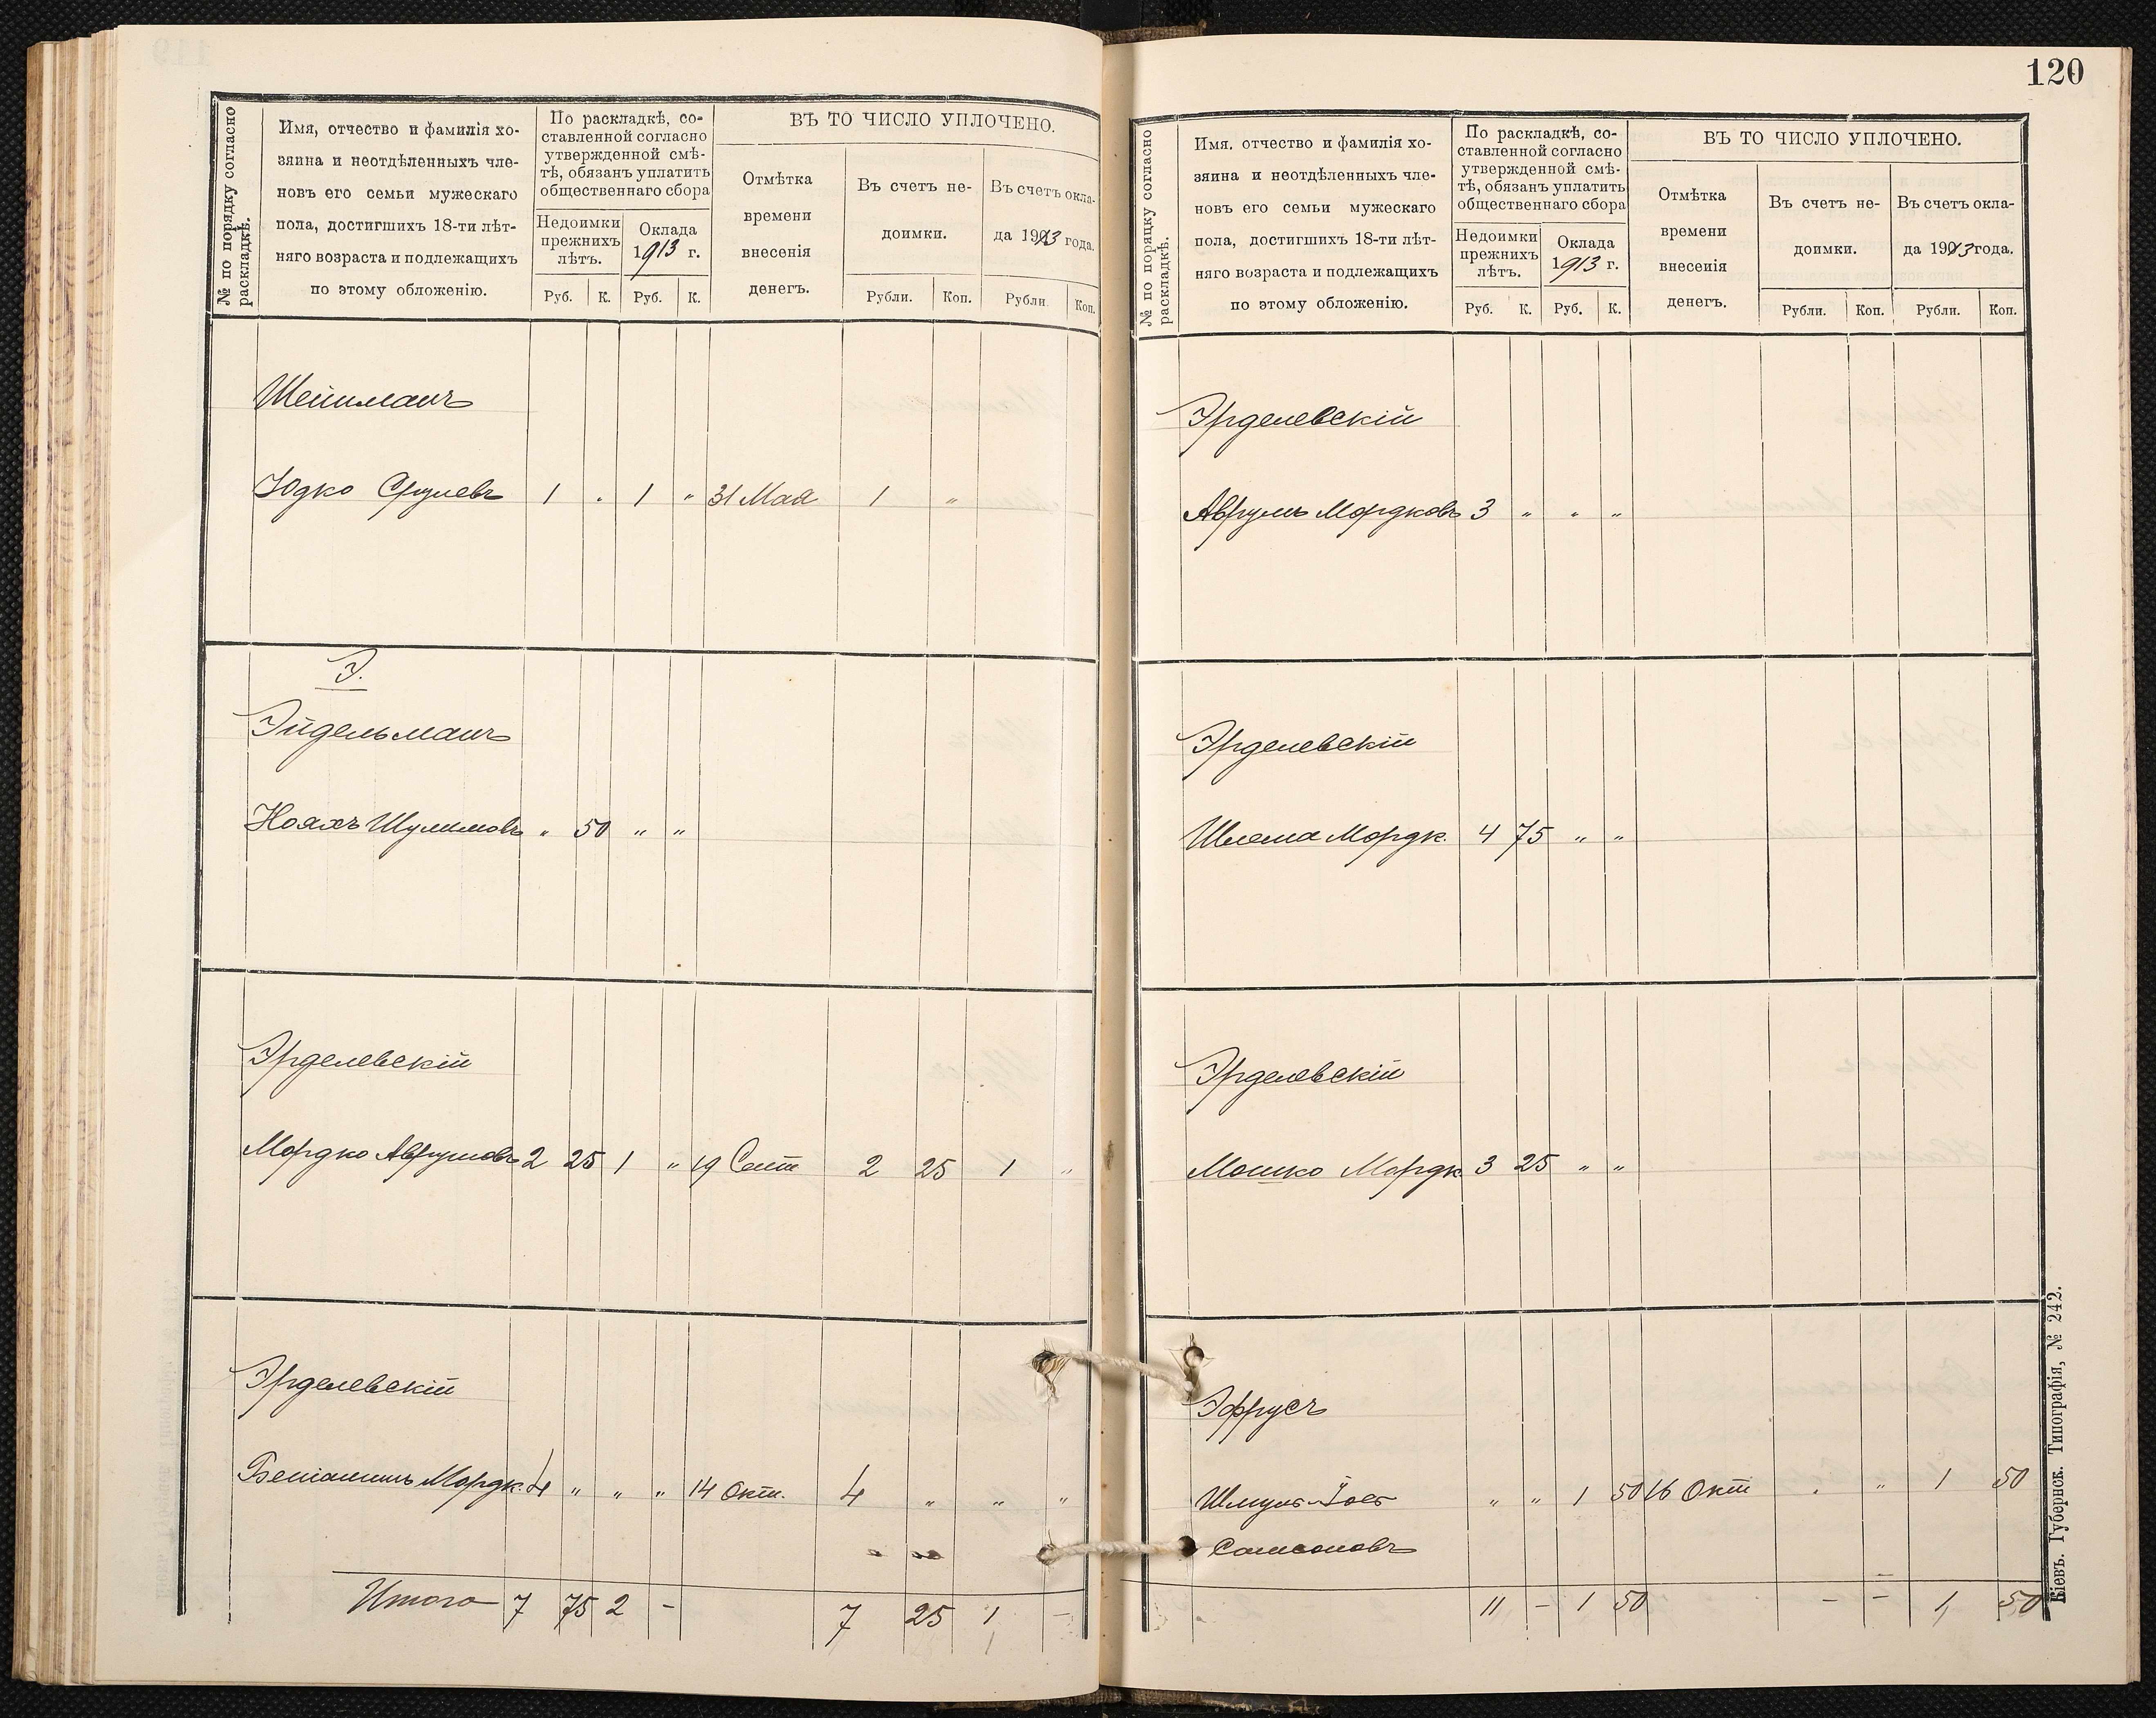 120
№ по порядку согласно раскладкѣ.
Имя, отчество и фамилія хо-
зяина и неотдѣленныхъ чле-
новъ его семьи мужескаго
пола, достигшихъ 18-ти лѣт-
няго возраста и подлежащихъ
по этому обложенію.
По раскладкѣ, со-
ставленной согласно
утвержденной смѣ-
тѣ, обязанъ уплатить
общественнаго сбора
Недоимки
прежнихъ
лѣтъ.
Оклада
1913 г.
Руб. К. Руб. К.
ВЪ ТО ЧИСЛО УПЛОЧЕНО.
Отмѣтка
времени
внесенія
денегъ.
Въ счетъ не-
доимки.
Въ счетъ окла-
да 1913 года.
Рубли. Коп. Рубли. Коп.
Шейнманъ
Юдко Срулевъ 1 " 1 " 31 Мая 1 "
Э.
Эйдельманъ
Нояхъ Шулимовъ " 50 " "
Эрделевскій
Мордко Аврумовъ 2 25 1 " 19 Сент 2 25 1 "
Эрделевскій
Беніаминъ Мордк. 4 " " " 14 Окт. 4 " " "
Итого 7 75 2 - 7 25 1 -
№ по порядку согласно раскладкѣ.
Имя, отчество и фамилія хо-
зяина и неотдѣленныхъ чле-
новъ его семьи мужескаго
пола, достигшихъ 18-ти лѣт-
няго возраста и подлежащихъ
по этому обложенію.
По раскладкѣ, со-
ставленной согласно
утвержденной смѣ-
тѣ, обязанъ уплатить
общественнаго сбора
Недоимки
прежнихъ
лѣтъ.
Оклада
1913 г.
Руб. К. Руб. К.
ВЪ ТО ЧИСЛО УПЛОЧЕНО.
Отмѣтка
времени
внесенія
денегъ.
Въ счетъ не-
доимки.
Въ счетъ окла-
да 1913 года.
Рубли. Коп. Рубли. Коп.
Эрделевскій
Аврумъ Мордковъ 3 " " "
Эрделевскій
Шлема Мордк. 4 75 " "
Эрделевскій
Мошко Мордк. 3 25 " "
Эфрусъ
Шмуль-Іось " " 1 50 16 Окт " " 1 50
Самсоновъ
11 - 1 50 - - 1 50
Кіевъ. Губернск. Типографія, № 242.